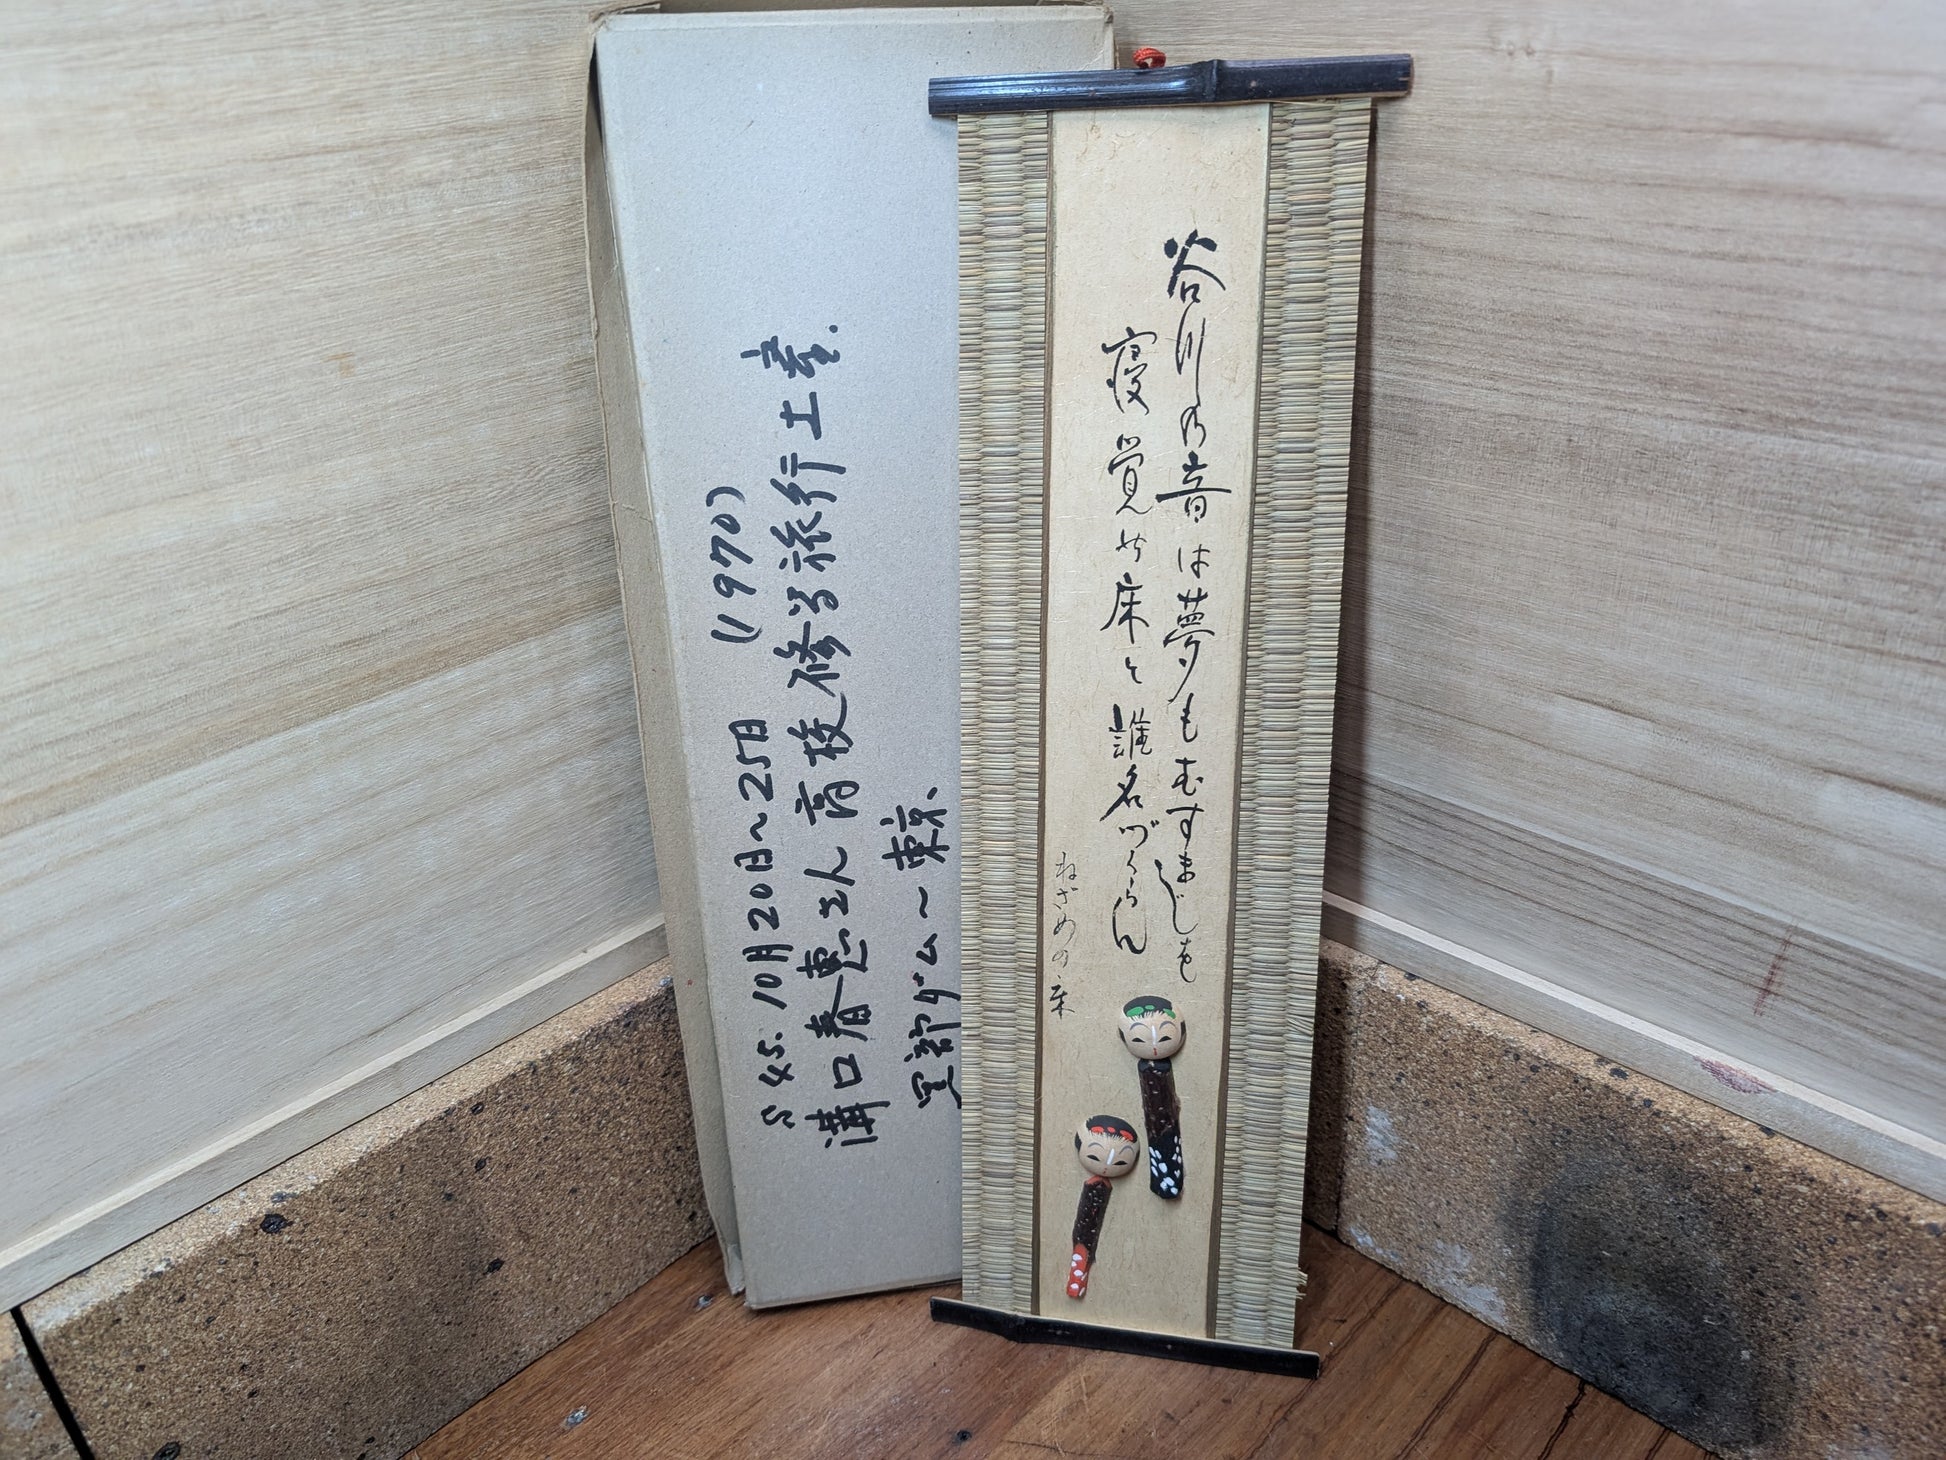 S45.10月20日〜25日　(1970)
溝口春恵さん高校修学旅行土産.
黒部ダム〜東京.
谷川の音は夢もむすまじも
寝覚の床と誰名づくらん
ねざめの床